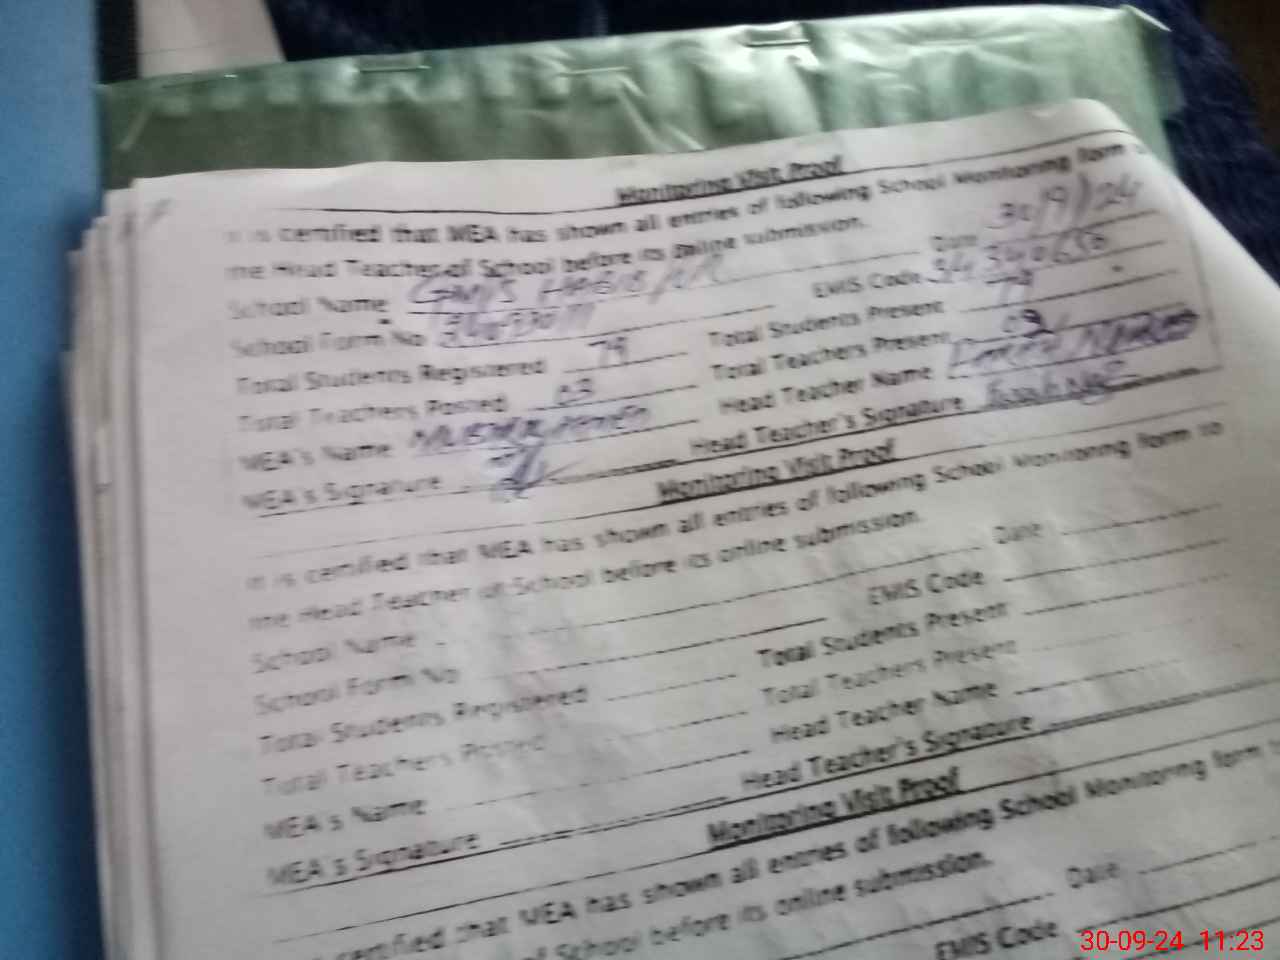 Monitoring Visit Proof
It is certified that MEA has shown all entries of following School Monitoring form to
the Head Teacher of School before its online submission.
School Name Date 30/9/24
School Form No EMIS Code
Total Students Registered 79 Total Students Present 79
Total Teachers Posted 03 Total Teachers Present
MEA's Name Head Teacher Name
MEA's Signature Head Teacher's Signature
Monitoring Visit Proof
It is certified that MEA has shown all entries of following School Monitoring form to
the Head Teacher of School before its online submission.
School Name Date
School Form No EMIS Code
Total Students Registered Total Students Present
Total Teachers Posted Total Teachers Present
MEA's Name Head Teacher Name
MEA's Signature Head Teacher's Signature
Monitoring Visit Proof
certified that MEA has shown all entries of following School Monitoring form
of School before its online submission.
Date
EMIS Code
30-09-24 11:23